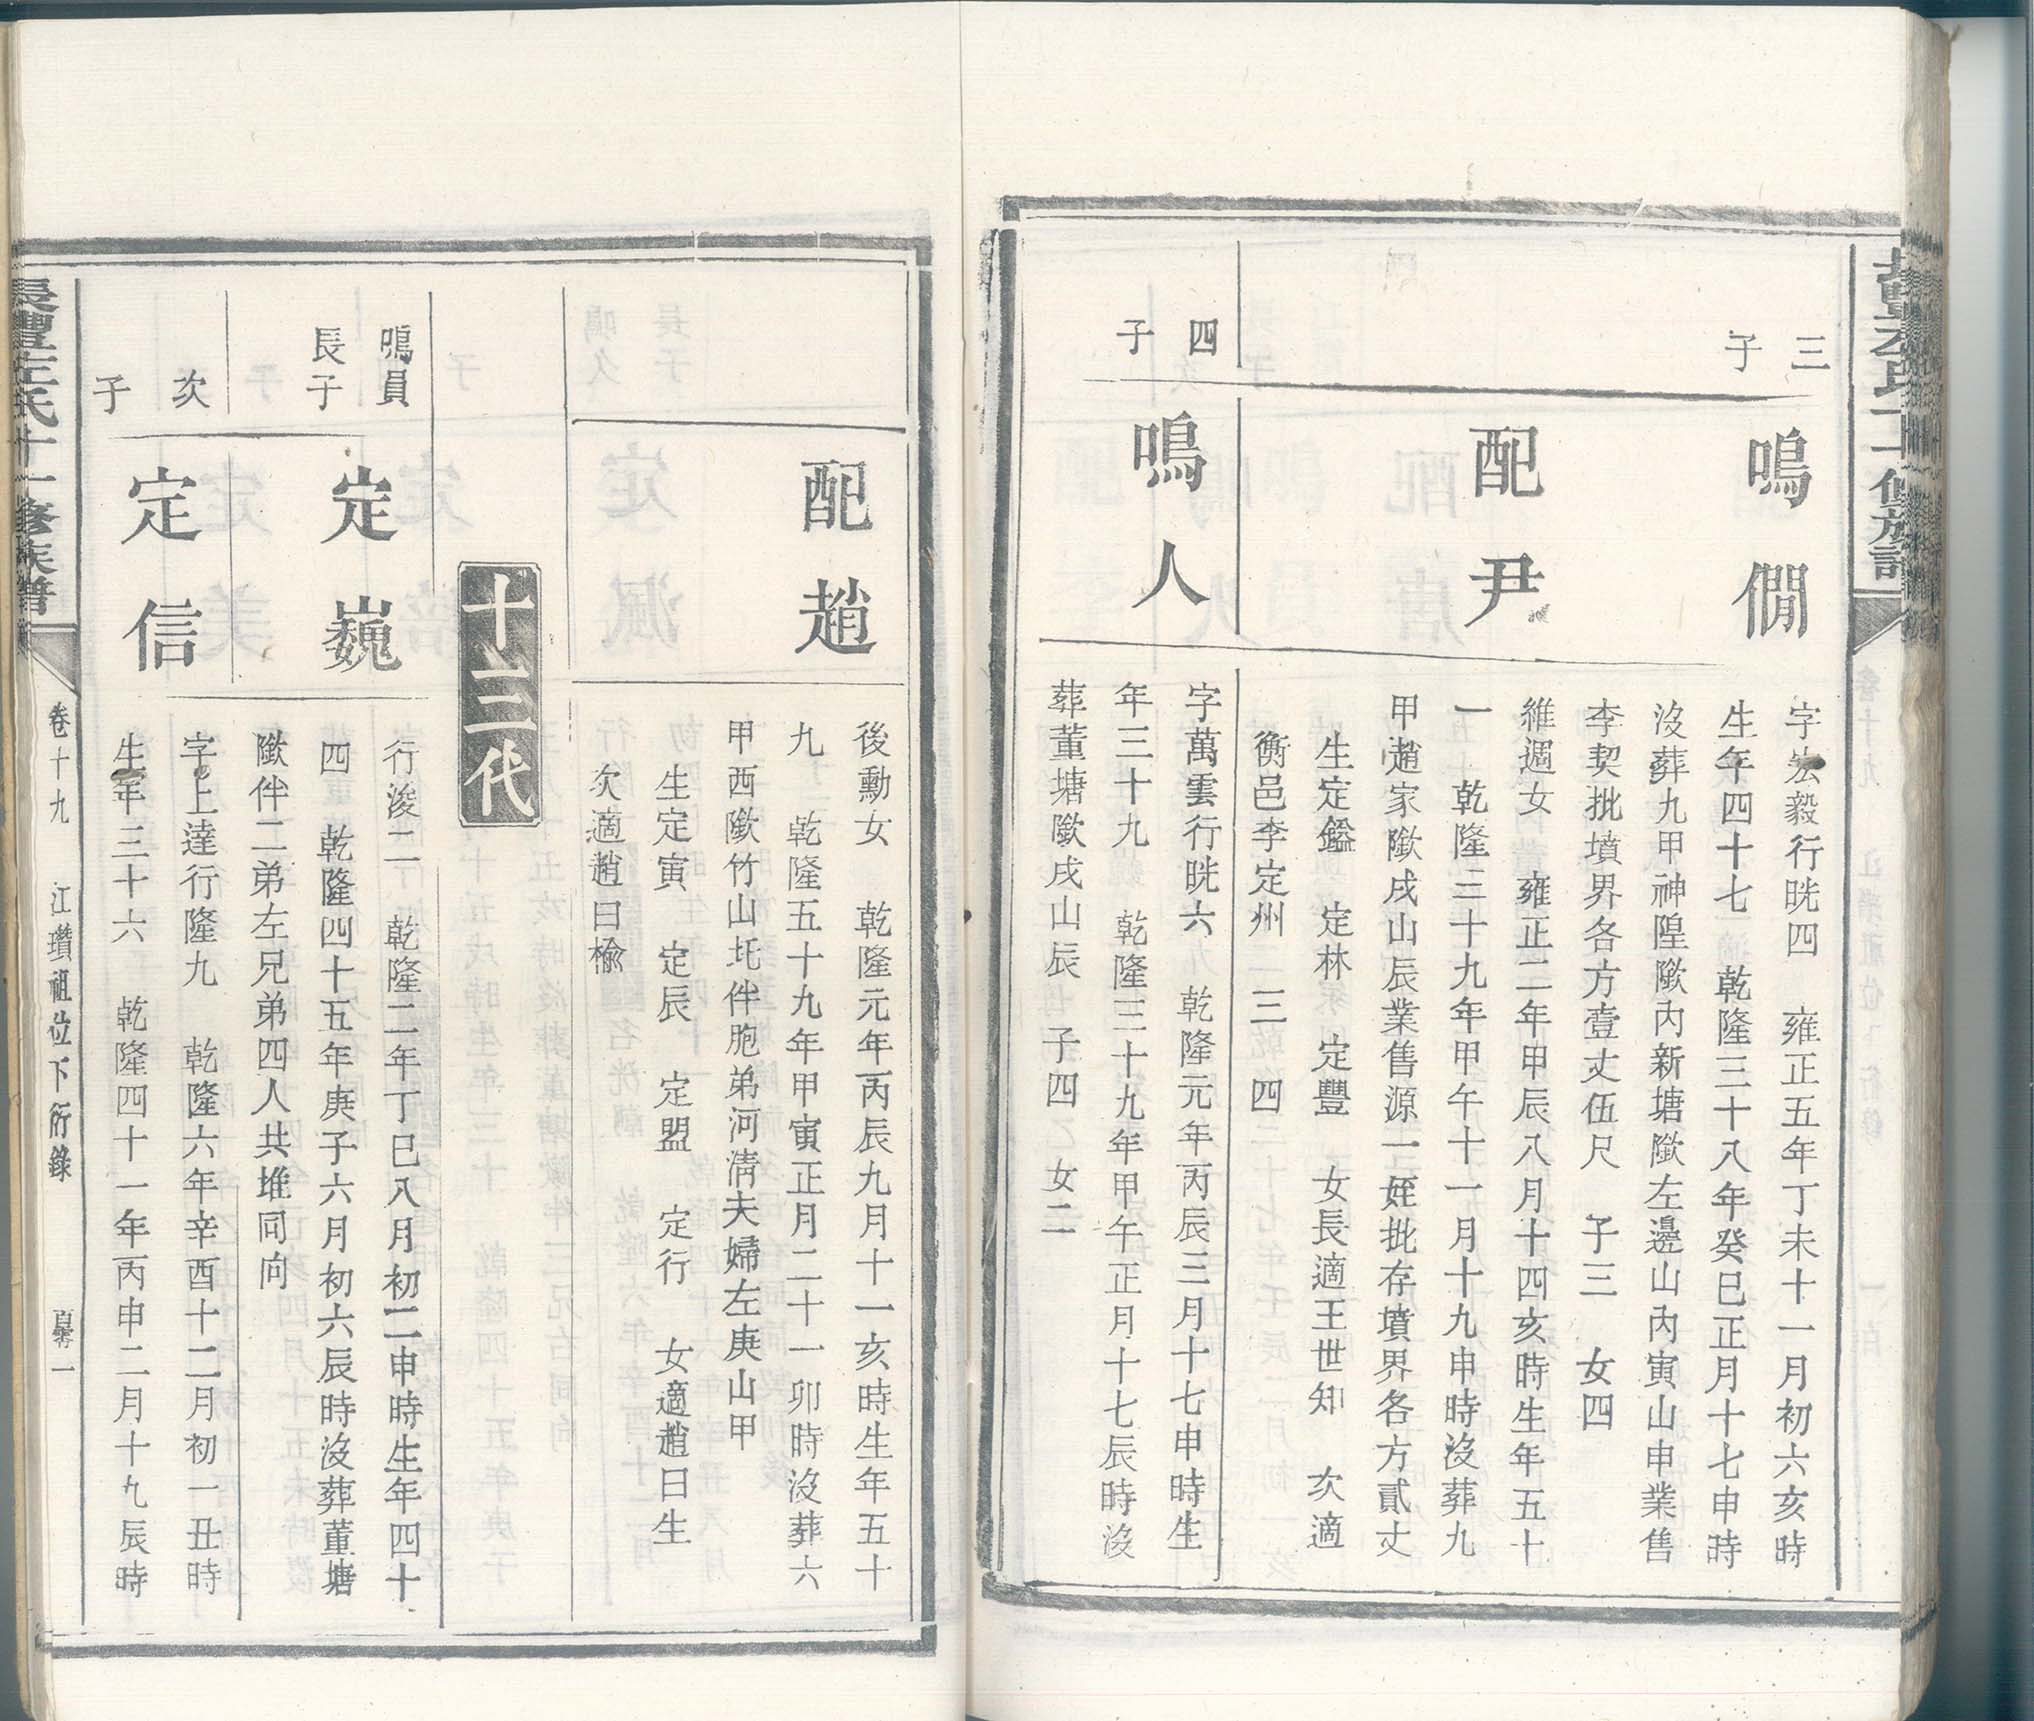 三
子
鳴㒞
字宏毅行晄四　雍正五年丁未十一月初六亥時
生年四十七　乾隆三十八年癸巳正月十七申時
沒葬九甲神隍歞內新塘歞左邊山內寅山申業售
李契批墳界各方壹丈伍尺　子三　女四
配尹
維週女　雍正二年甲辰八月十四亥時生年五十
一　乾隆三十九年甲午十一月十九申時沒葬九
甲趙家歞戌山辰業售源一姪批存墳界各方貳丈
生定鑑　定林　定豐　女長適王世知　次適
衡邑李定州　三　四
四
子
鳴人
字萬雲行晄六　乾隆元年丙辰三月十七申時生
年三十九　乾隆三十九年甲午正月十七辰時沒
葬董塘歞戌山辰　子四　女二
配趙
後勳女　乾隆元年丙辰九月十一亥時生年五十
九　乾隆五十九年甲寅正月二十一卯時沒葬六
甲西歞竹山圫伴胞弟河清夫婦左庚山甲
生定寅　定辰　定盟　定行　女適趙日生
次適趙日楡
十三代
鳴員
長子
定巍
行浚二　乾隆二年丁巳八月初二申時生年四十
四　乾隆四十五年庚子六月初六辰時沒葬董塘
歞伴二弟左兄弟四人共堆同向
次
子
定信
字上達行隆九　乾隆六年辛酉十二月初一丑時
生年三十六　乾隆四十一年丙申二月十九辰時
長豐左氏十一修族譜
卷十九　江瓚祖位下衍錄　百零一